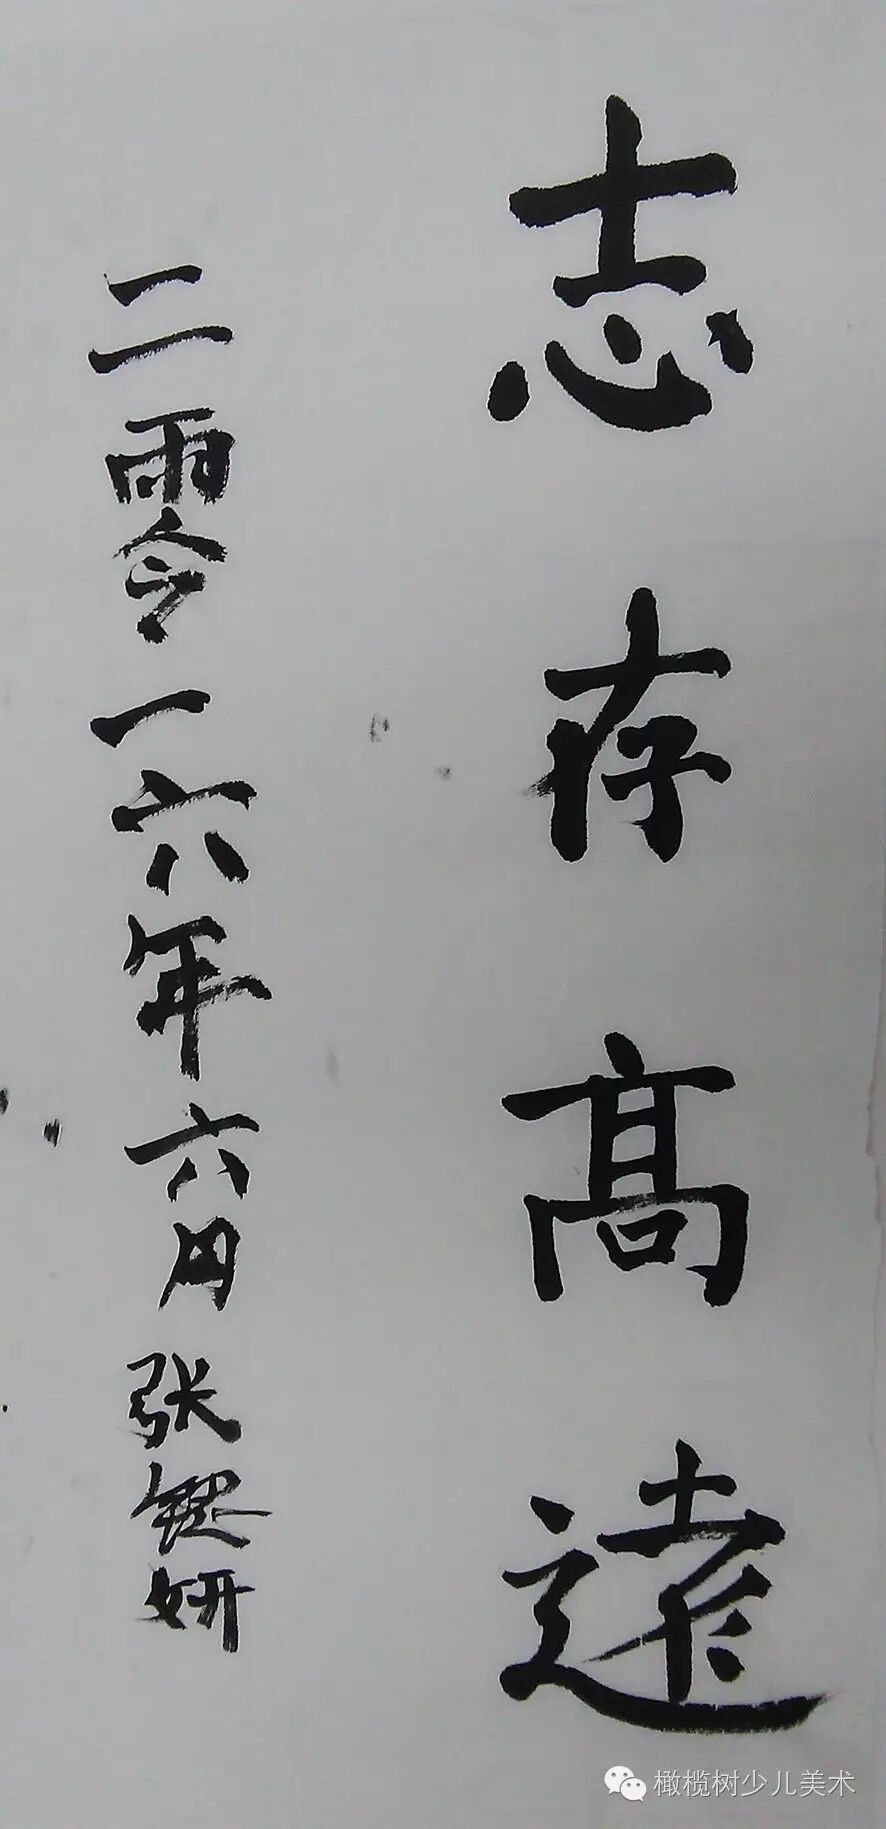 志存高遠
二零一六年六月张鍟妍
橄榄树少儿美术